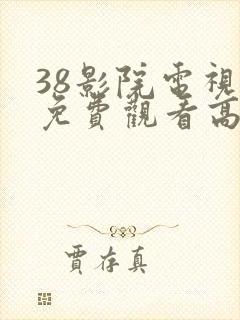 38影院電視
免費觀看高
賈存真